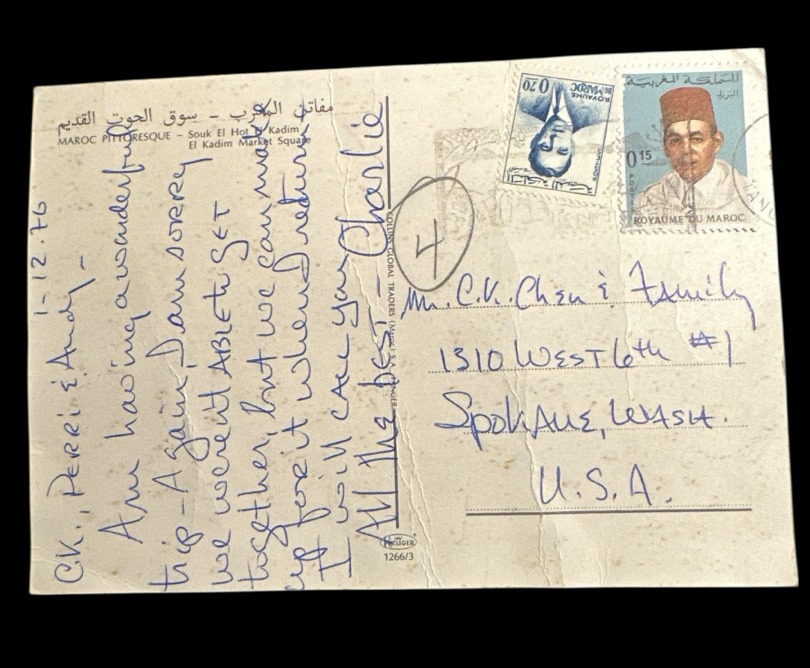 مفاتن المغرب – سوق الحوت القديم
MAROC PITTORESQUE – Souk El Hot El Kadim
El Kadim Market Square
1-12.76
C.K., PERRI & Andy –
Am having a wonderful
trip – Again, I am SORRY
we weren't ABLE to GET
together, but we can make
up for it when I return.
I will CALL you
All the best – Charlie
4
KRÜGER
1266/3
ROYAUME
DU MAROC
0.20
المملكة المغربية
البريد
0.15
ROYAUME DU MAROC
Mr. C.K. Chen & Family
1310 WEST 6th #1
SPOKANE, WASH.
U.S.A.